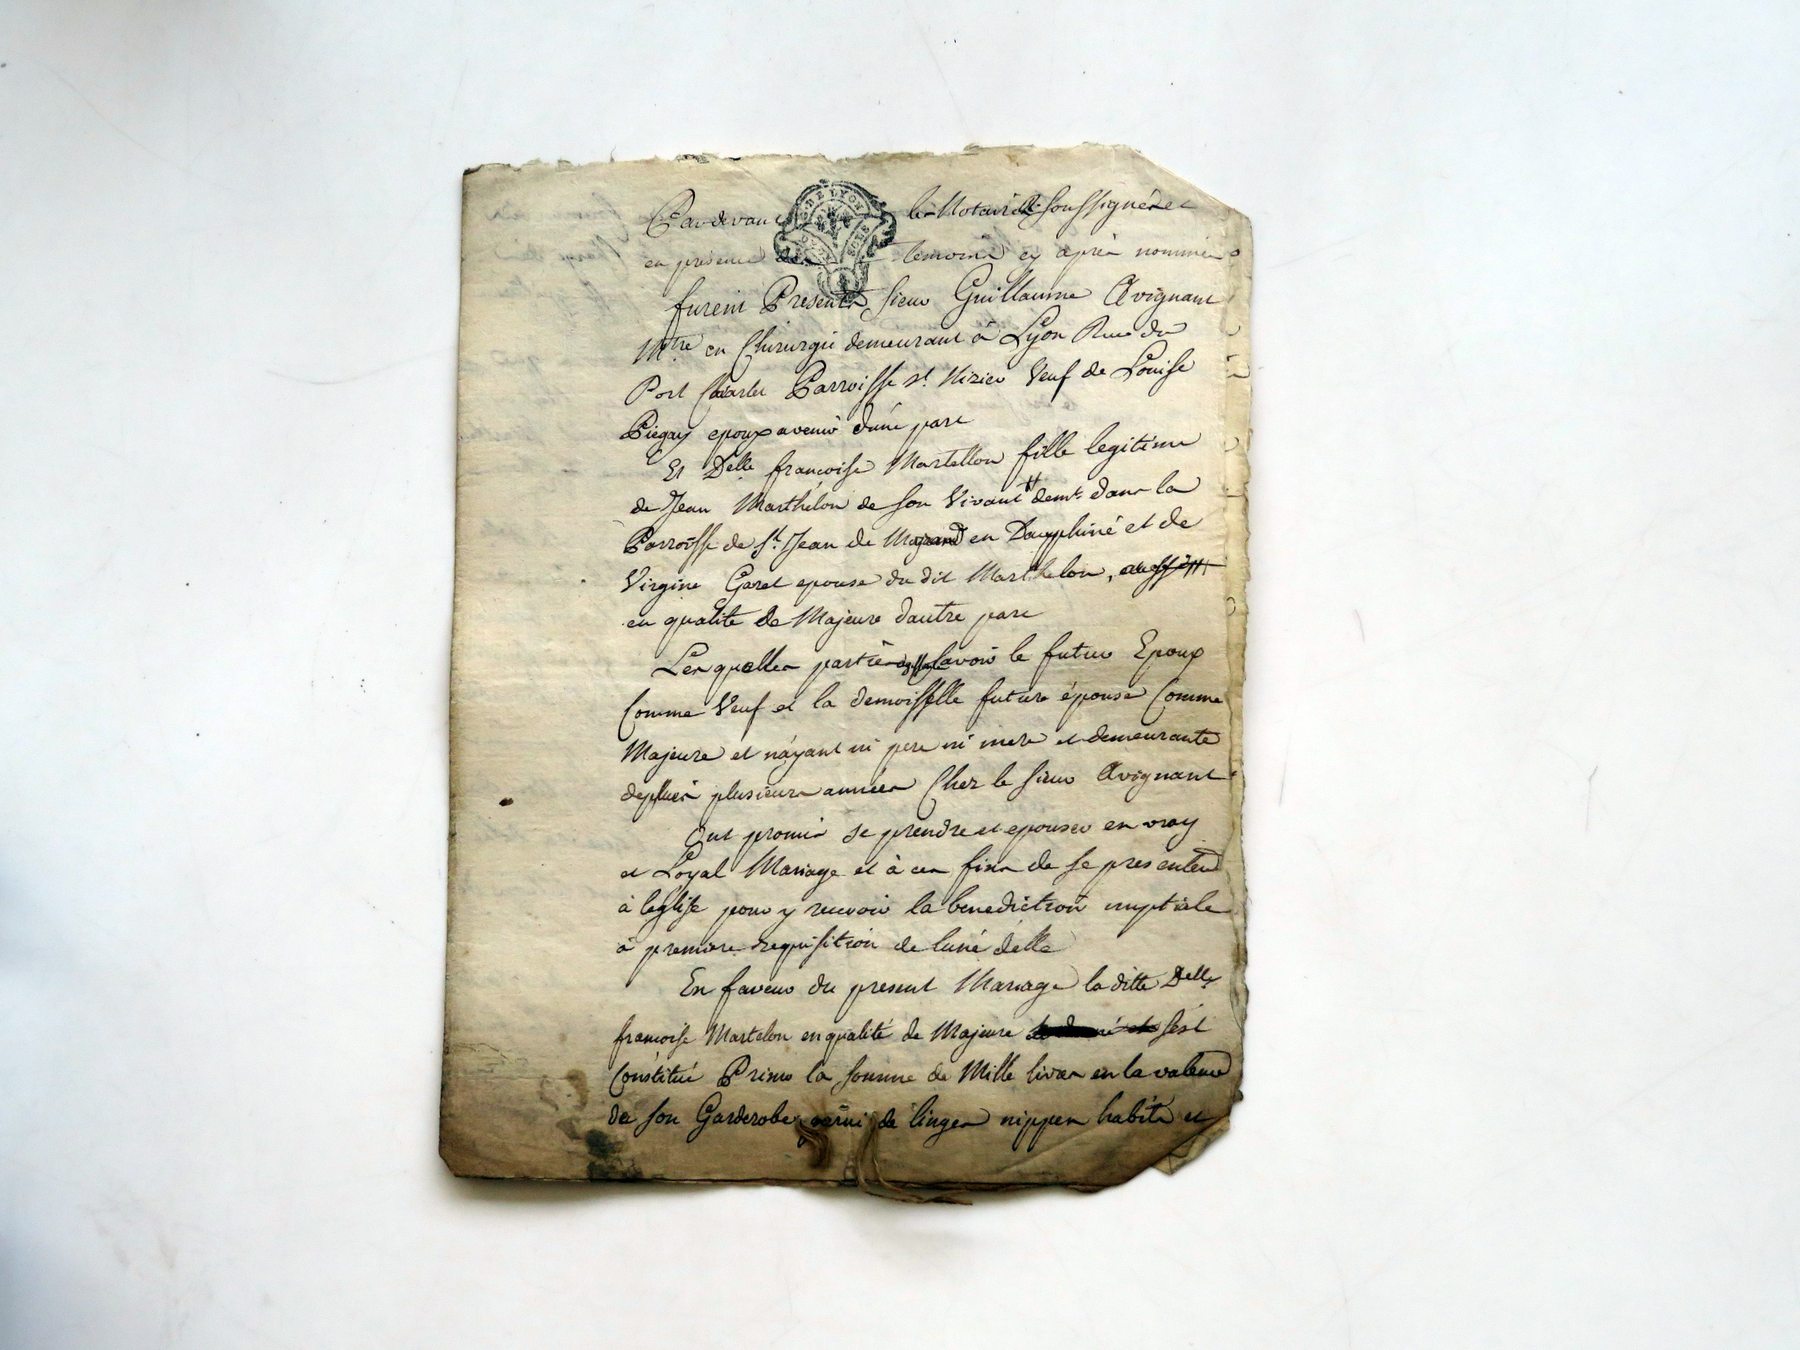 DE LYON
SOLS
Pardevant les Notaires soussignés et
en presence des temoins cy après nommés
furent Presents Sieur Guillaume Avignant
Mtre en Chirurgie demeurant à Lyon Rue du
Port Charlet Parroisse st. Nizier Veuf de Louise
Piegay epoux avenir d'une part
Et Delle francoise Martellon fille legitime
de Jean Marthelon de son Vivant demt. dans la
Parroisse de St. Jean de en Dauphiné et de
Virgine Garet epouse du dit Marthelon,
en qualité de Majeure dautre part
Lesquelles parties savoir le futur Epoux
Comme Veuf et la demoisselle future épouse Comme
Majeure et náyant ni pere ni mere et demeurante
depluis plusieurs années Chez le sieur Avignant
Ont promis se prendre et epouser en vray
et Loyal Mariage et à ces fins de se presenter
à leglise pour y recevoir la benediction nuptiale
à premiere requisition de luné delle
En faveur du present Mariage la ditte Delle
francoise Martelon en qualité de Majeure sest
Constitué Primo la somme de Mille livres en la valeur
de son Garderobe garni de linges nippes habits et